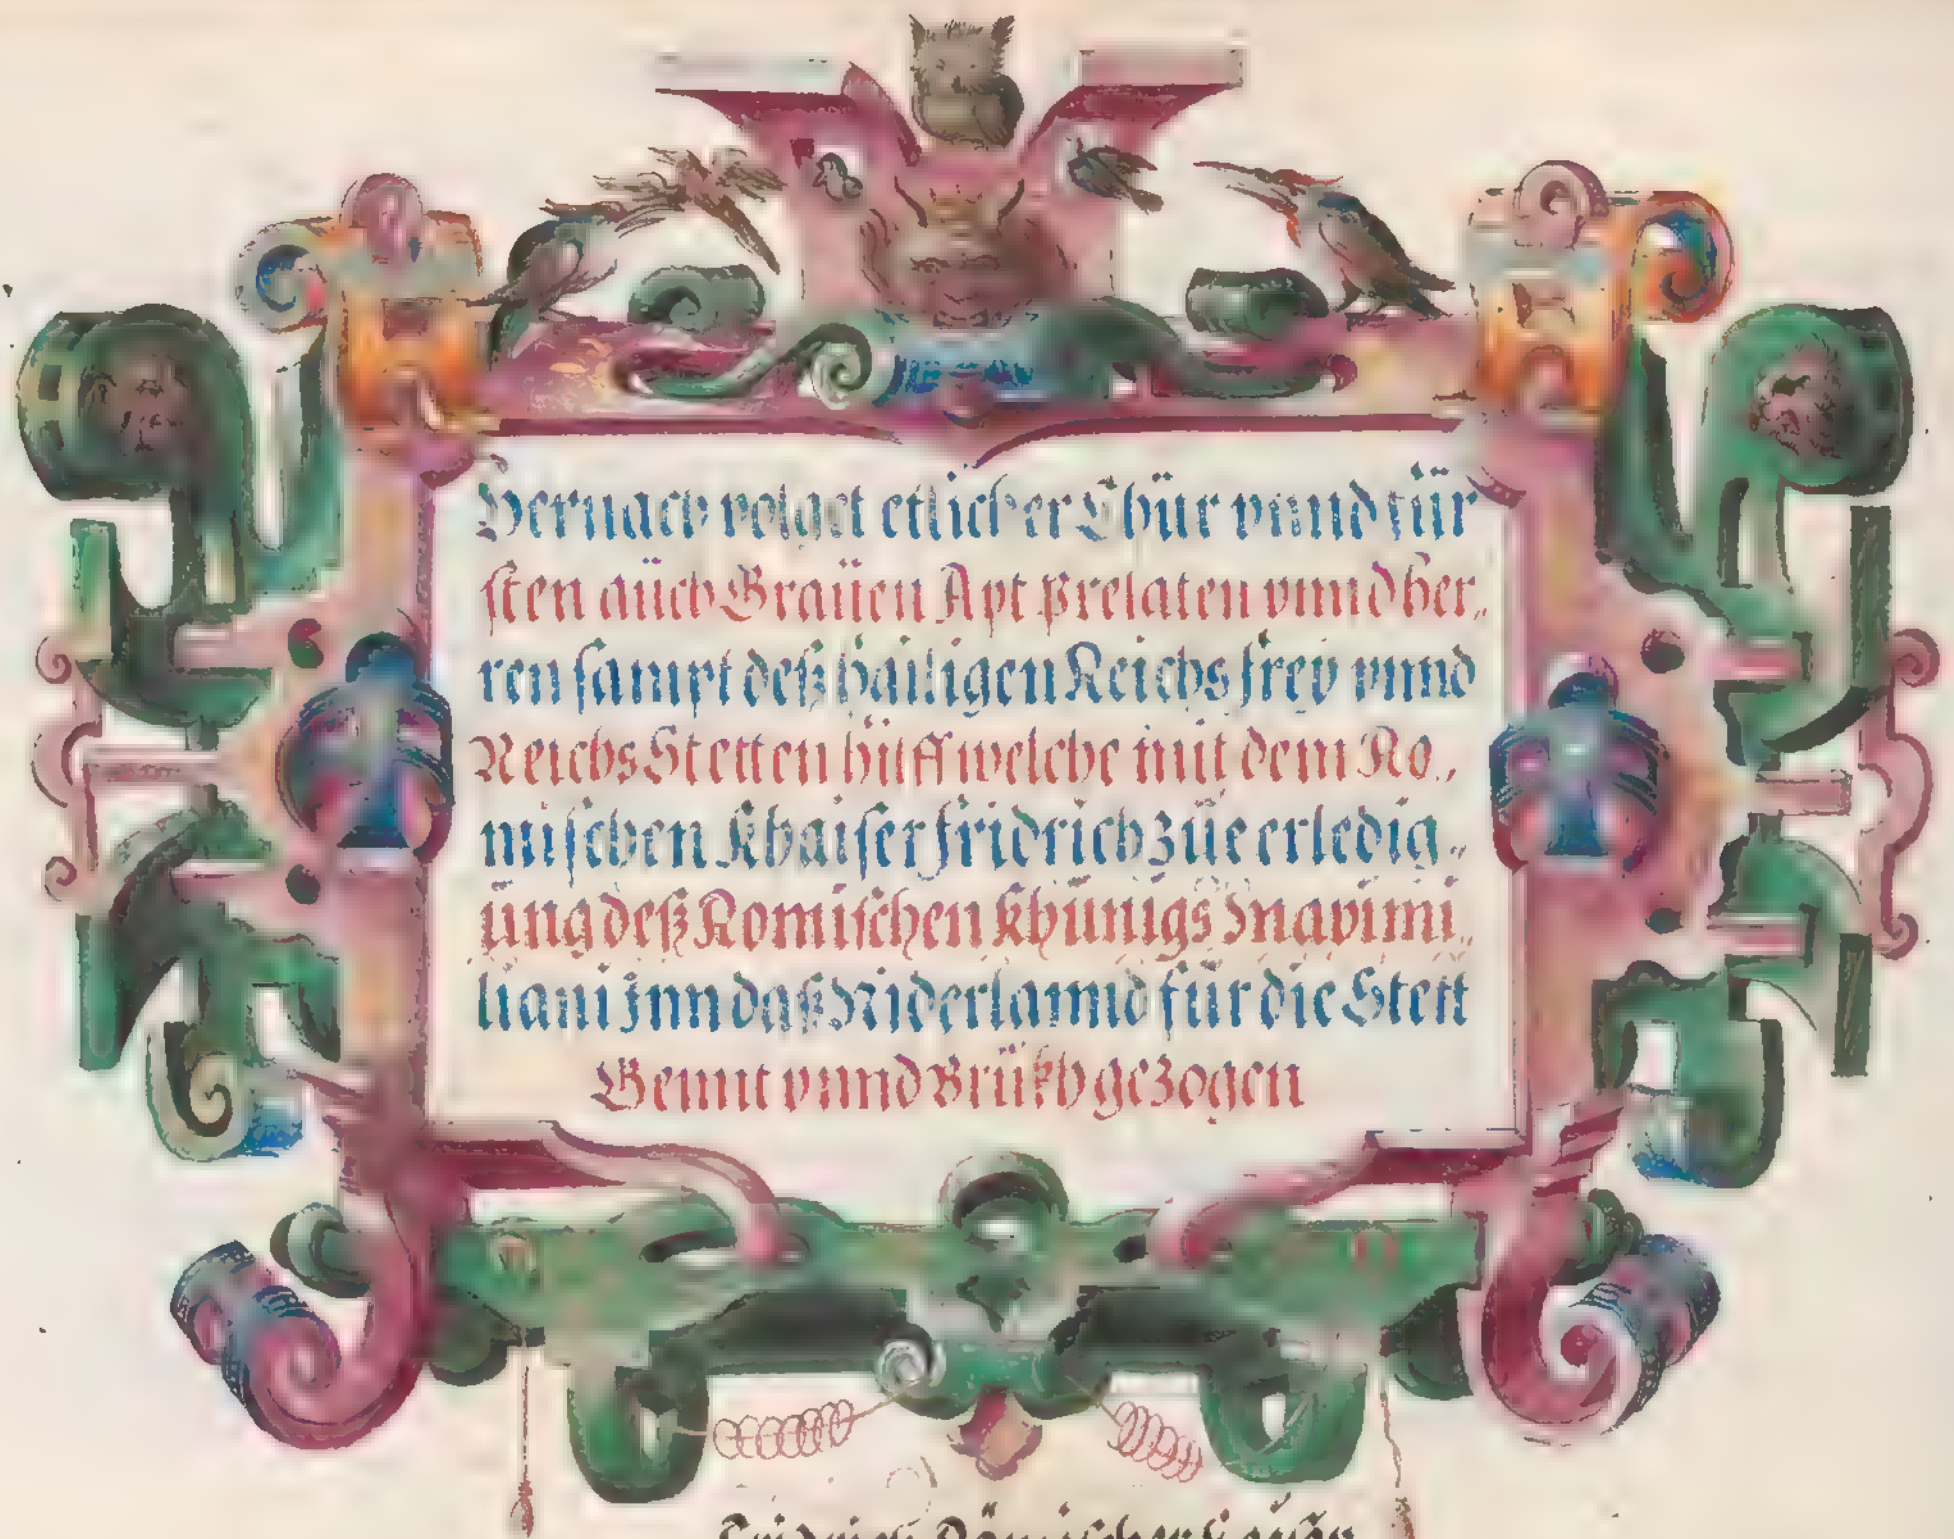 Hernach volget etlicher Chür vnnd für
sten aüch Graüen Apt Prelaten vnnd her„
ren sampt deß hailigen Reichs frey vnnd
Reichs Stetten hilff welche mit dem Ro„
mischen Khaiser fridrich züe erledig„
üng deß Romischen khünigs Maximi„
liani Inn daß Niderlannd für die Stett
Gennt vnnd Brükh gezogen